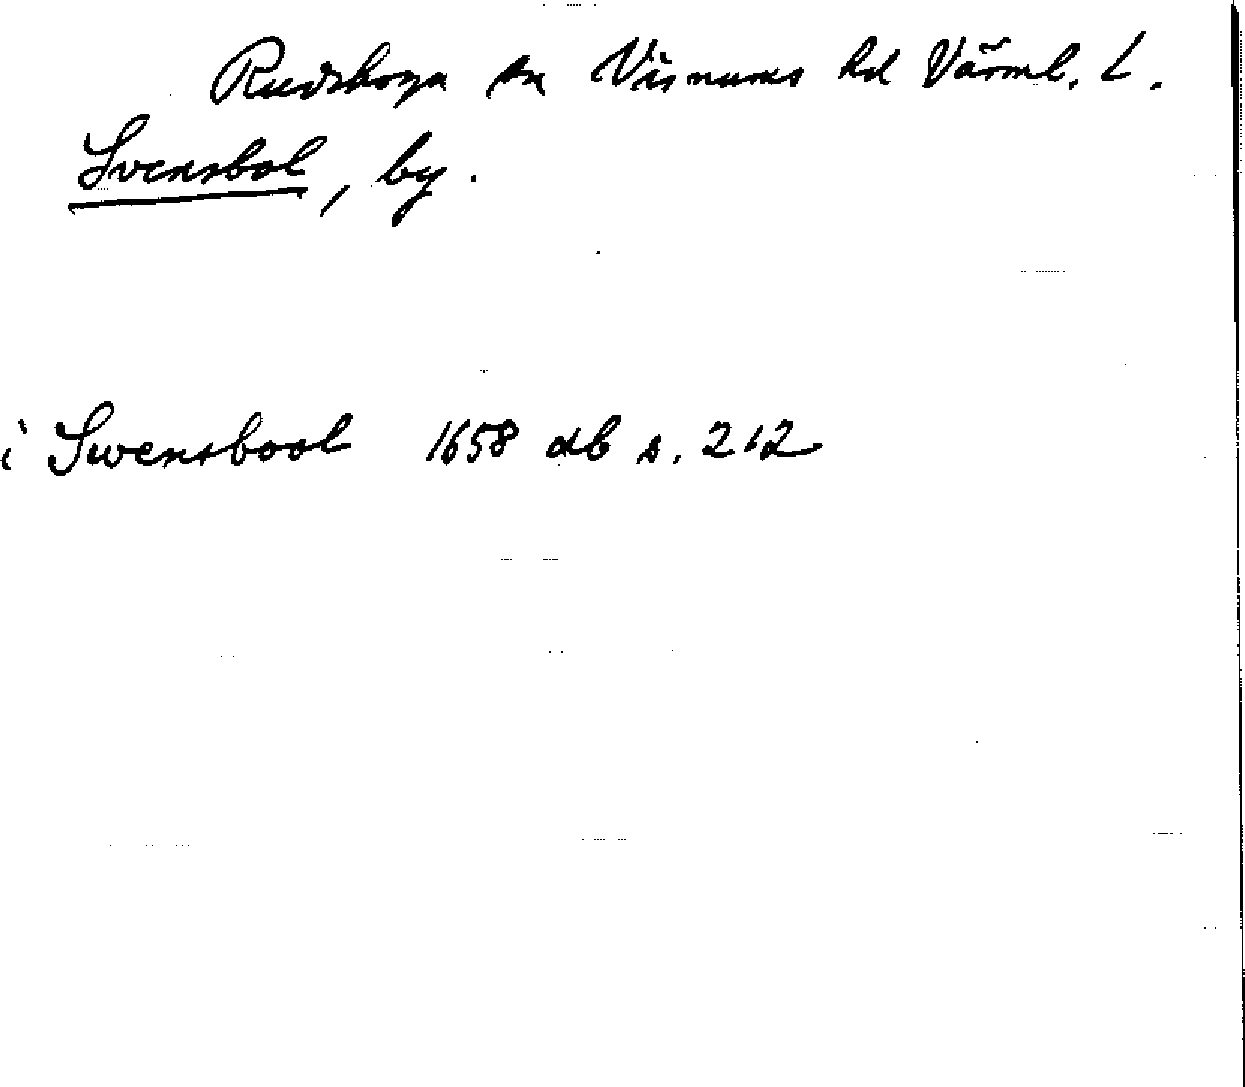 Rudskoga sn Visnums hd Värml. L.
Svensbol, by.
i Swensbool 1658 db s. 212